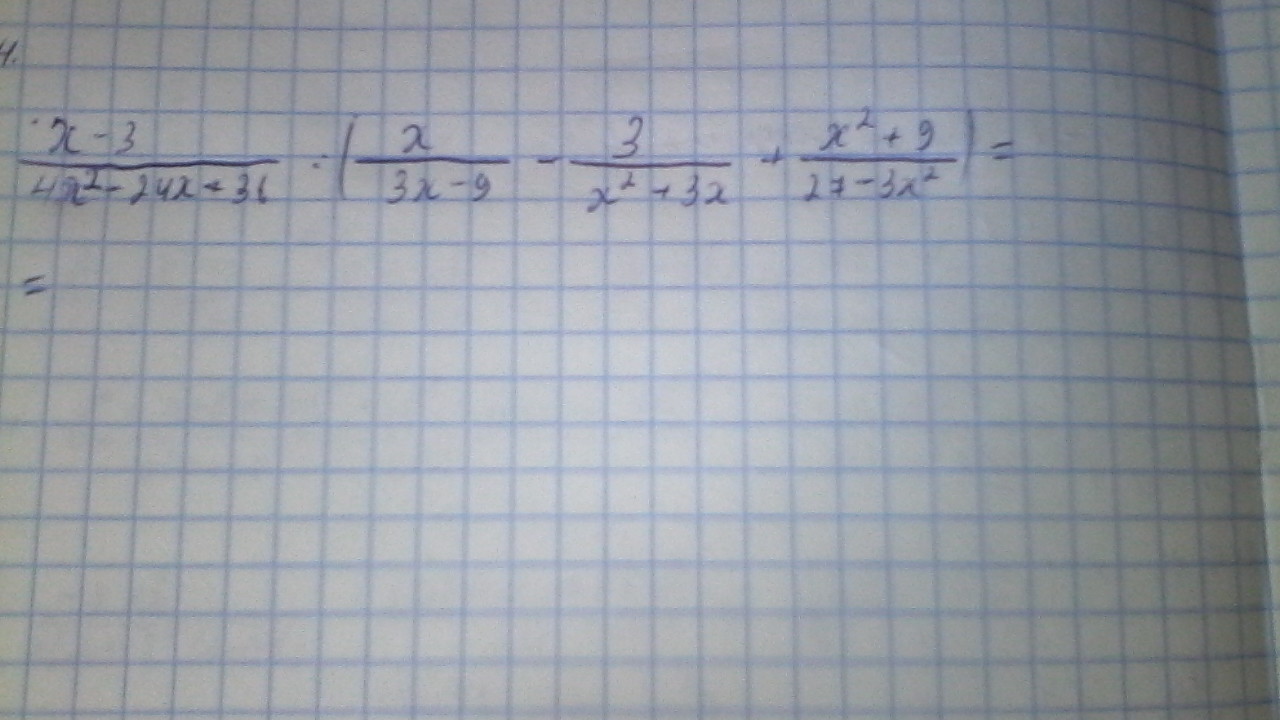 4.
x - 3 / 4x² - 24x + 36 : ( x / 3x - 9 - 3 / x² + 3x + x² + 9 / 27 - 3x² ) =
=